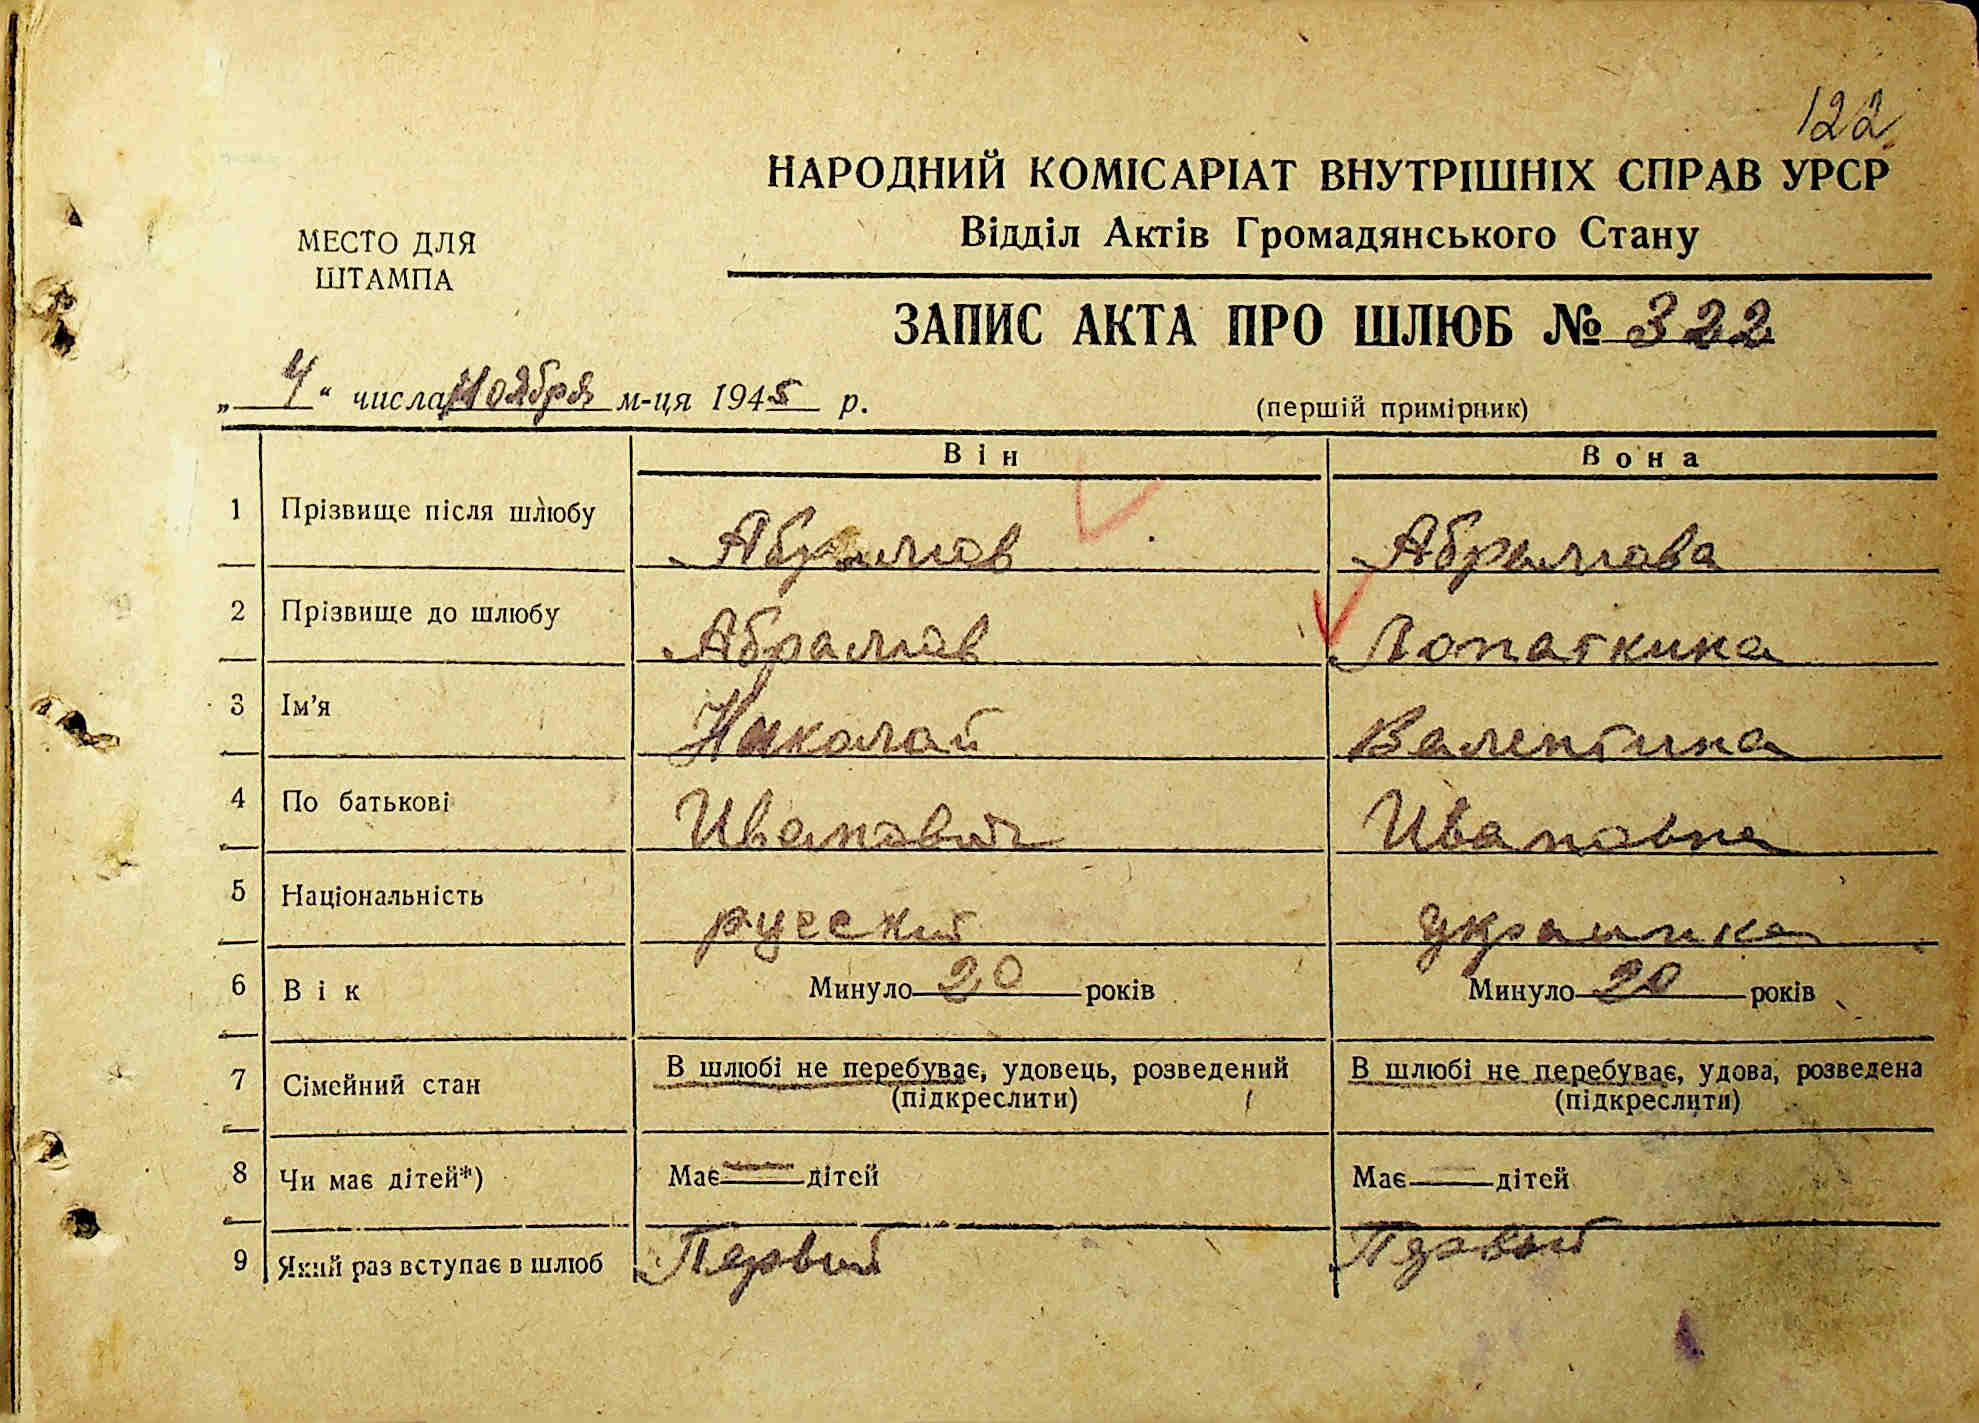 122
НАРОДНИЙ КОМІСАРІАТ ВНУТРІШНІХ СПРАВ УРСР
Відділ Актів Громадянського Стану
МЕСТО ДЛЯ
ШТАМПА
ЗАПИС АКТА ПРО ШЛЮБ № 322
„4“ числа Ноября м-ця 1945 р.
(першій примірник)
Він Вона
1 Прізвище після шлюбу Абрамов Абрамова
2 Прізвище до шлюбу Абрамов Лопаткина
3 Ім'я Николай Валентина
4 По батькові Иванович Ивановна
5 Національність русский украинка
6 Вік Минуло 20 років Минуло 20 років
7 Сімейний стан В шлюбі не перебуває, удовець, розведений В шлюбі не перебуває, удова, розведена
(підкреслити) (підкреслити)
8 Чи має дітей*) Має — дітей Має — дітей
9 Який раз вступає в шлюб Первый Первый